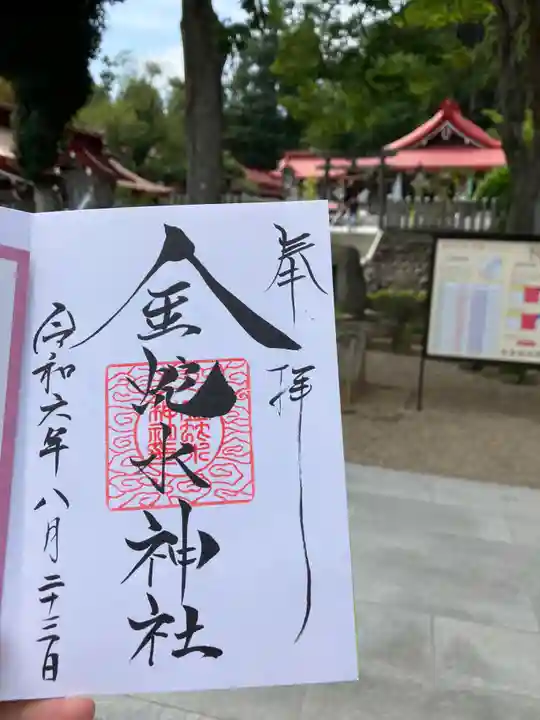 奉拝
金蛇水神社
令和六年八月二十三日